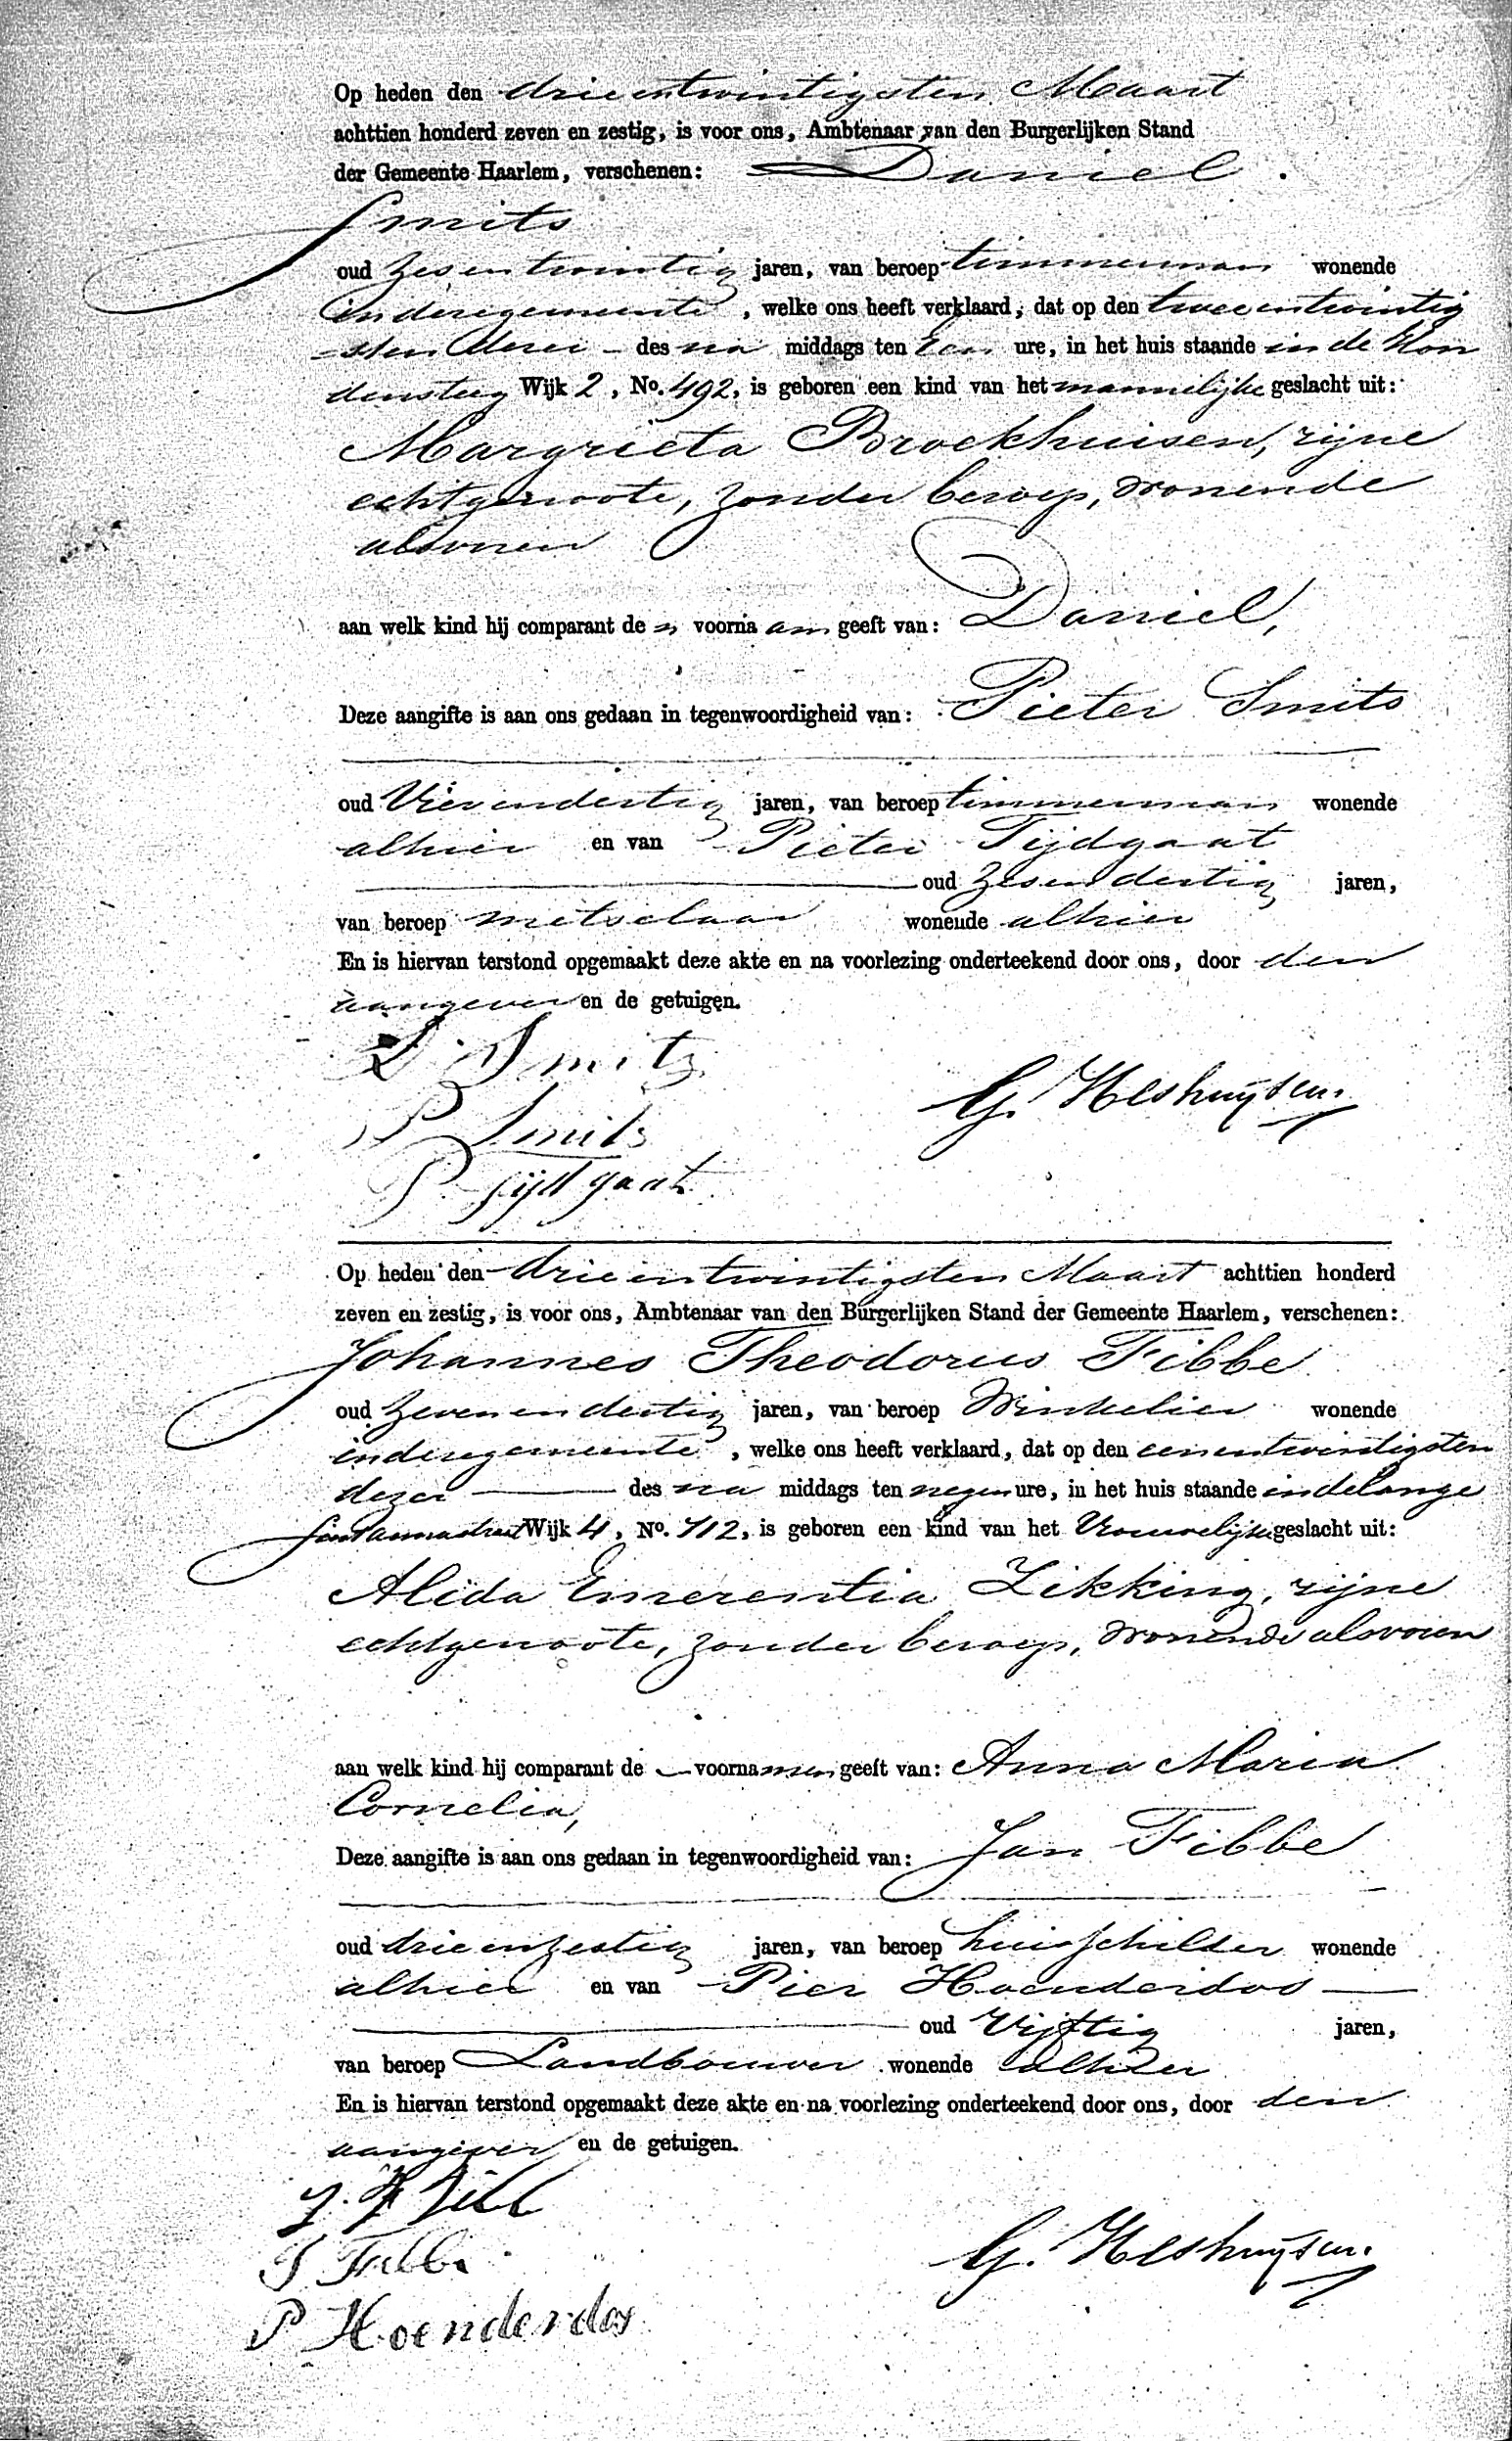 Op heden den drieentwintigsten Maart
achttien honderd zeven en zestig, is voor ons, Ambtenaar van den Burgerlijken Stand
der Gemeente Haarlem, verschenen: Daniel
Smits
oud zesentwintig jaren, van beroep timmerman wonende
in deze gemeente, welke ons heeft verklaard, dat op den tweeentwintig
sten dezer des na middags ten een ure, in het huis staande in de Kon
densteeg Wijk 2, No. 492, is geboren een kind van het mannelijke geslacht uit:
Margrieta Broekhuisen, zijne
echtgenoote, zonder beroep, wonende
alsvoren
aan welk kind hij comparant de n voornaam geeft van: Daniel,
Deze aangifte is aan ons gedaan in tegenwoordigheid van: Pieter Smits
oud Vierendertig jaren, van beroep timmerman wonende
alhier en van Pieter Tijdgaat
oud zesendertig jaren,
van beroep metselaar wonende alhier
En is hiervan terstond opgemaakt deze akte en na voorlezing onderteekend door ons, door den
aangever en de getuigen.
D. Smits
P Smits G. Heshuysen.
P Tijdgaat
Op heden den drieentwintigsten Maart achttien honderd
zeven en zestig, is voor ons, Ambtenaar van den Burgerlijken Stand der Gemeente Haarlem, verschenen:
Johannes Theodorus Fibbe
oud zevenendertig jaren, van beroep Winkelier wonende
in deze gemeente, welke ons heeft verklaard, dat op den eenentwintigsten
dezer des na middags ten negen ure, in het huis staande in de lange
Sint annastraat Wijk 4, No. 712, is geboren een kind van het Vrouwelijke geslacht uit:
Alida Emerentia Zikking, zijne
echtgenoote, zonder beroep, wonende alsvoren
aan welk kind hij comparant de voornamen geeft van: Anna Maria
Cornelia,
Deze aangifte is aan ons gedaan in tegenwoordigheid van: Jan Fibbe
oud drieenzestig jaren, van beroep huisschilder wonende
alhier en van Pier Hoenderdos
oud Vijftig jaren,
van beroep Landbouwer wonende alhier
En is hiervan terstond opgemaakt deze akte en na voorlezing onderteekend door ons, door den
aangever en de getuigen.
J. Fibbe G. Heshuysen.
P Hoenderdos